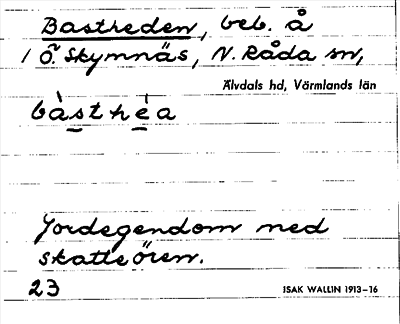 Bastheden, beb. å
1 Ö. Skymnäs, N. Råda sn,
Älvdals hd, Värmlands län
bàsthèa
Jordegendom med
skatteören.
23 ISAK WALLIN 1913-16